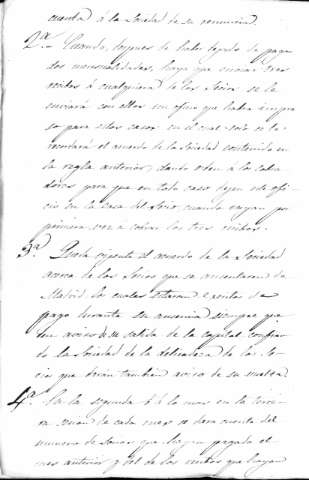 cuenta á la Sociedad de su renuncia.
2.ª Cuando, despues de haber dejado de pagar
dos mensualidades, haya que enviar tres
recibos á cualquiera de los Socios se le
enviará con ellos un oficio que habrá impre
so para estos casos en el cual se le re-
cordará el acuerdo de la Sociedad contenido en
la regla anterior, dando orden á los cobra
dores para que en todo caso dejen este ofi
cio en la casa del Socio cuando vayan por
primera vez a cobrar los tres recibos.
3.ª Queda vigente el acuerdo de la Sociedad
acerca de los Socios que se ausentaren de
Madrid, los cuales estaran exentos de
pago durante su ausencia siempre que
den aviso de su salida de la capital, confian
do la Sociedad de la delicadeza de los So-
cios que darán tambien aviso de su vuelta.
4.ª En la segunda ó á lo mas en la terce
ra sesion de cada mes se dara cuenta del
numero de Socios que hayan pagado el
mes anterior y del de los recibos que hayan